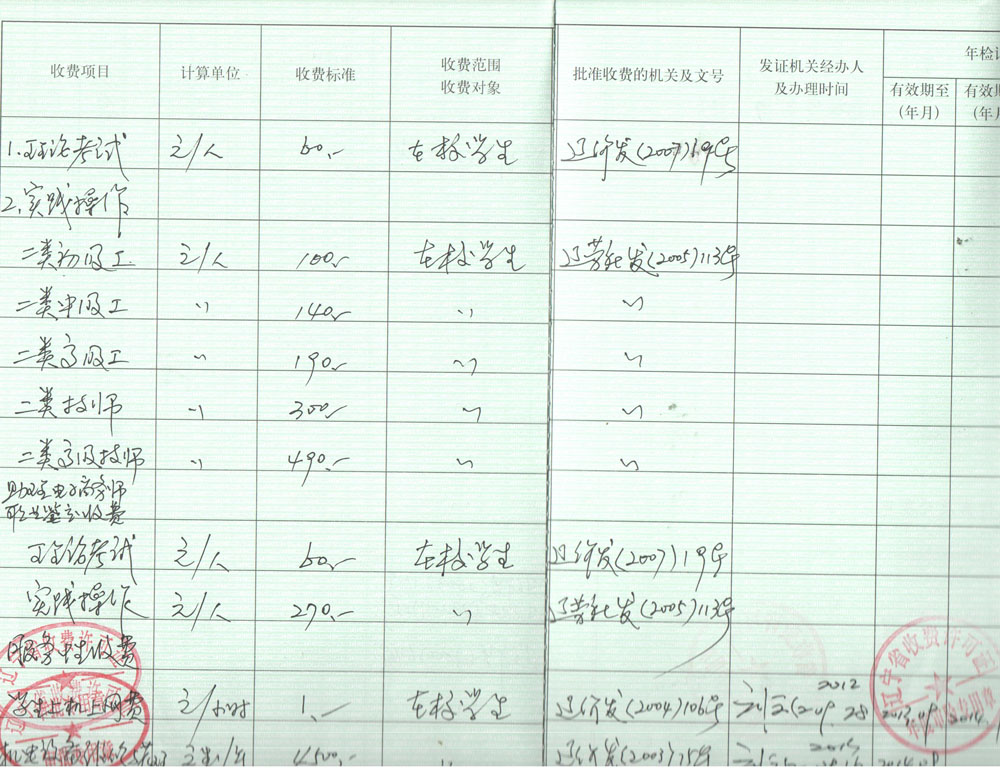 收费项目 计算单位 收费标准 收费范围 收费对象 批准收费的机关及文号 发证机关经办人 及办理时间 年检
有效期至 (年月) 有效期 (年月
1.理论考试 元/人 60.- 在校学生 辽价发(2007)19号
2.实践操作
二类初级工 元/人 100.- 在校学生 辽劳社发(2005)113号
二类中级工 〃 140.- 〃 〃
二类高级工 〃 190.- 〃 〃
二类技师 〃 300.- 〃 〃
二类高级技师 〃 490.- 〃 〃
助理电子商务师
职业鉴定收费
理论考试 元/人 60.- 在校学生 辽价发(2007)19号
实践操作 元/人 270.- 〃 辽劳社发(2005)113号
服务性收费
学生上机上网费 元/小时 1.- 在校学生 辽价发(2004)106号 2012 09.28 2013.09 2014.
4500.- 〃
辽宁省收费许可证